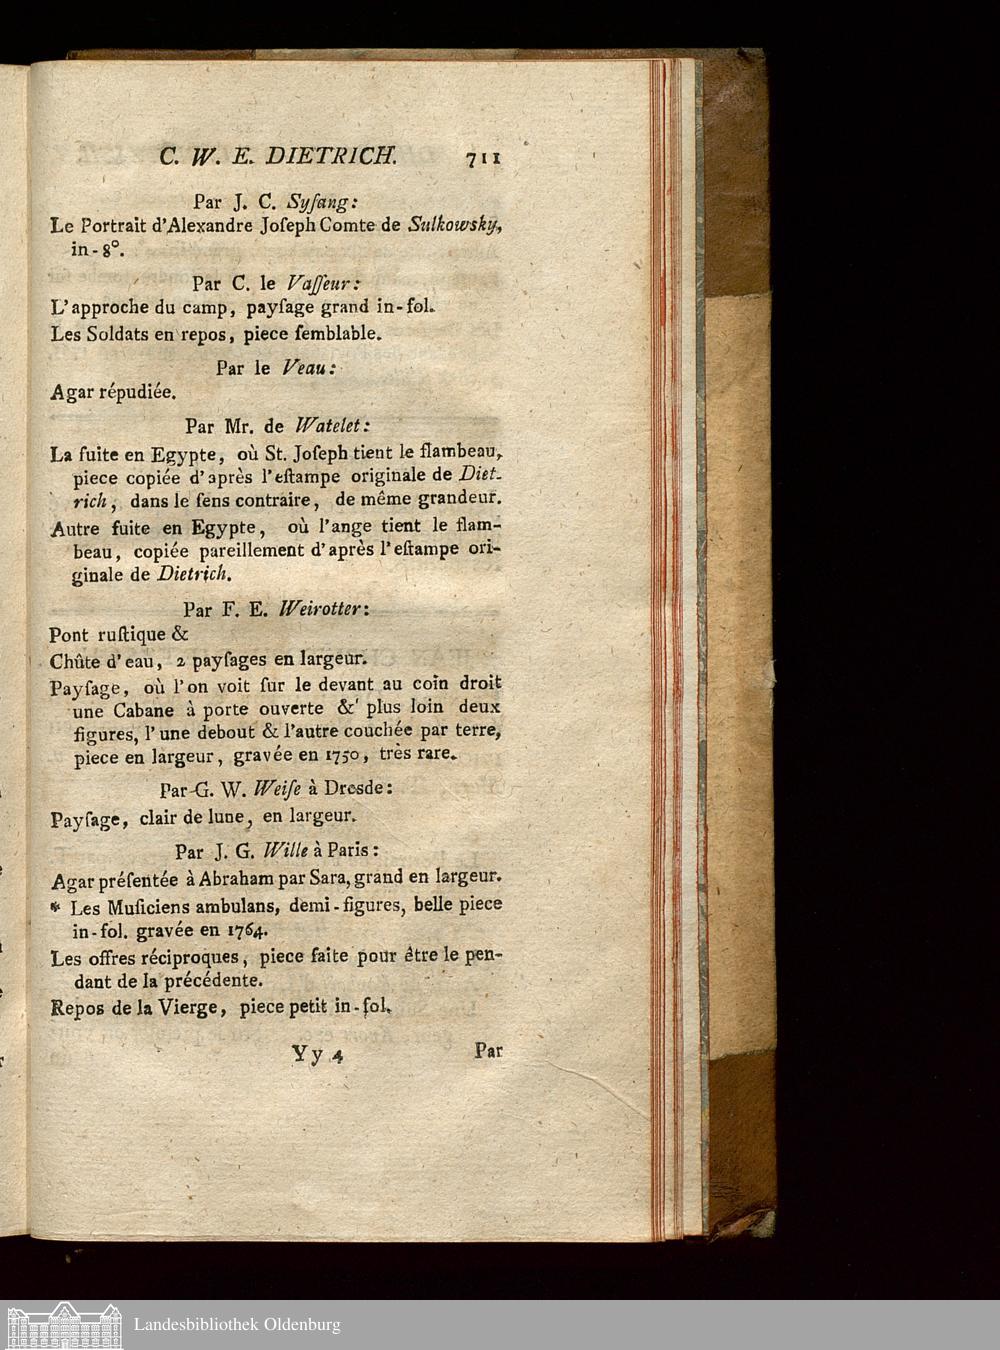 C. W. E. DIETRICH. 711
Par J. C. Syſang:
Le Portrait d'Alexandre Joſeph Comte de Sulkowsky,
in-8°.
Par C. le Vaſſeur:
L'approche du camp, payſage grand in-fol.
Les Soldats en repos, piece ſemblable.
Par le Veau:
Agar répudiée.
Par Mr. de Watelet:
La fuite en Egypte, où St. Joſeph tient le flambeau,
piece copiée d'après l'eſtampe originale de Diet-
rich, dans le ſens contraire, de même grandeur.
Autre fuite en Egypte, où l'ange tient le flam-
beau, copiée pareillement d'après l'eſtampe ori-
ginale de Dietrich.
Par F. E. Weirotter:
Pont ruſtique &
Chûte d'eau, 2 payſages en largeur.
Payſage, où l'on voit ſur le devant au coin droit
une Cabane à porte ouverte & plus loin deux
figures, l'une debout & l'autre couchée par terre,
piece en largeur, gravée en 1750, très rare.
Par G. W. Weiſe à Dresde:
Payſage, clair de lune, en largeur.
Par J. G. Wille à Paris:
Agar préſentée à Abraham par Sara, grand en largeur.
* Les Muſiciens ambulans, demi-figures, belle piece
in-fol. gravée en 1764.
Les offres réciproques, piece faite pour être le pen-
dant de la précédente.
Repos de la Vierge, piece petit in-fol.
Yy 4 Par
Landesbibliothek Oldenburg